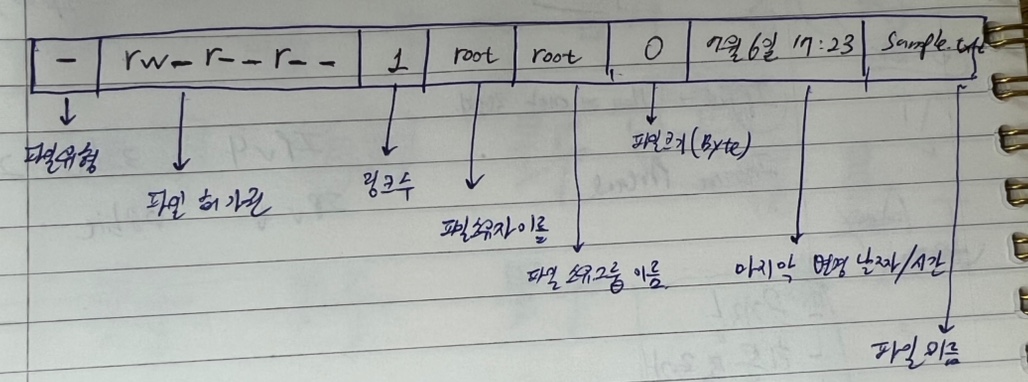 - rw-r--r-- 1 root root 0 7월 6일 17:23 Sample.txt
파일유형
파일 허가권
링크수
파일소유자이름
파일 소유그룹 이름
파일크기(Byte)
마지막 변경 날짜/시간
파일이름